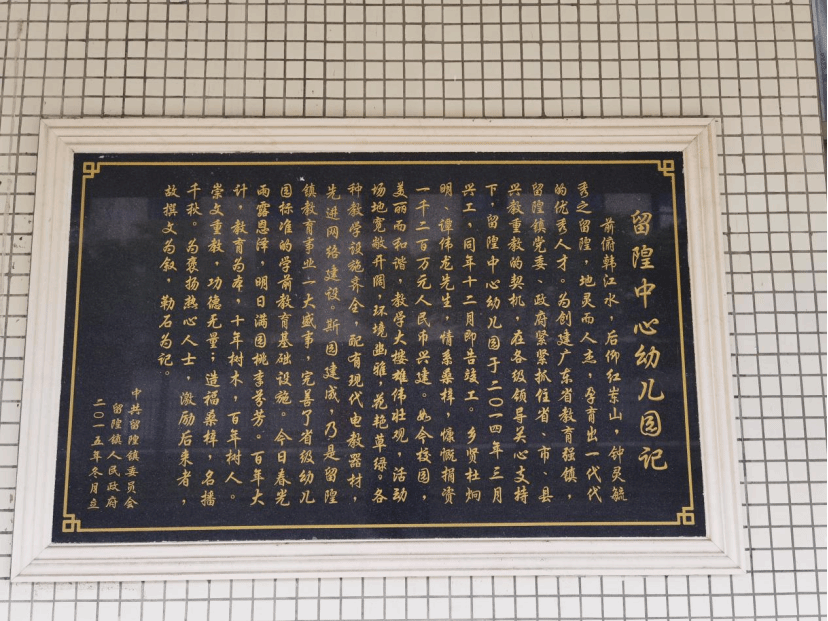 留隍中心幼儿园记
前俯韩江水，后仰红叶山，钟灵毓
秀之留隍，地灵而人杰，孕育出一代代
的优秀人才。为创建广东省教育强镇，
留隍镇党委、政府紧紧抓住省、市、县
兴教重教的契机，在各级领导关心支持
下，留隍中心幼儿园于二〇一四年三月
兴工，同年十二月即告竣工。乡贤杜炯
明、谭伟龙先生，情系桑梓，慷慨捐资
一千二百万元人民币兴建。如今校园，
美丽而和谐，教学大楼雄伟壮观，活动
场地宽敞开阔，环境幽雅，花艳草绿。各
种教学设施齐全，配有现代电教器材，
先进网络建设。斯园建成，乃是留隍
镇教育事业一大盛事，完善了省级幼儿
园标准的学前教育基础设施。今日春光
雨露恩泽，明日满园桃李芬芳。百年大
计，教育为本，十年树木，百年树人。
崇文重教，功德无量；造福桑梓，名播
千秋。为褒扬热心人士，激励后来者，
故撰文为叙，勒石为记。
中共留隍镇委员会
留隍镇人民政府
二〇一五年冬月立